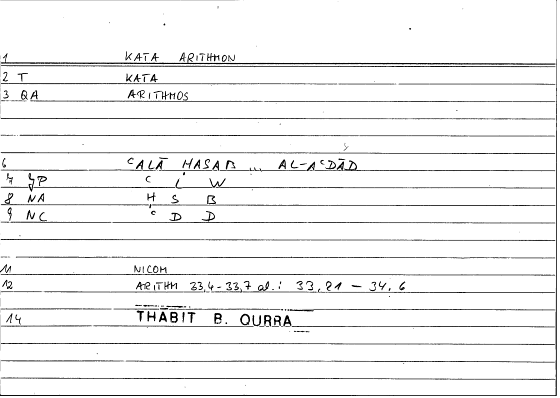 1 KATA ARITHMON
2 T KATA
3 QA ARITHMOS
6 ʿALĀ ḤASAB ... AL-AʿDĀD
7 JP ʿ L W
8 NA Ḥ S B
9 NC ʿ D D
11 NICOM
12 ARITHM 33,4-33,7 al.: 33,21 - 34,6
14 THABIT B. QURRA